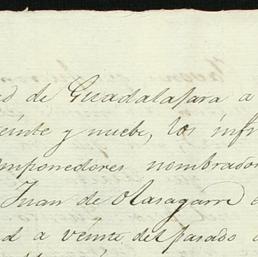 ad de Guadalajara a
einte y nuebe, los infr
omponedores nombrador
Juan de Olasagarre
d a veinte del pasado